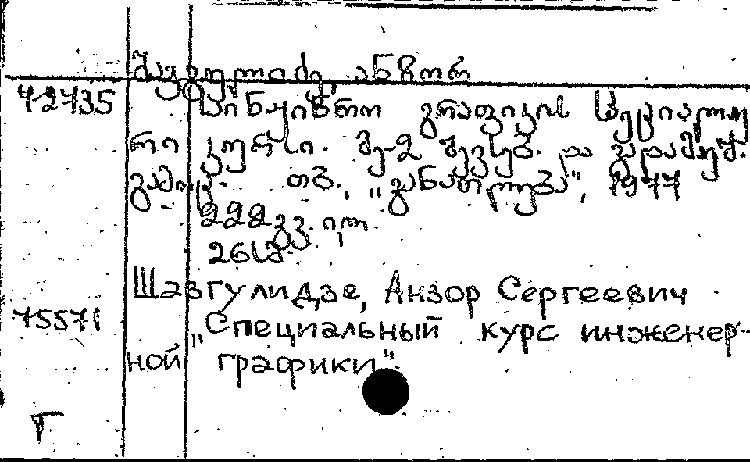 შავგულიძე, ანზორ
72735 საინჟინრო გრაფიკის სპეციალუ-
რი კურსი. მე-2 შევსებ. და გადამუშ.
გამოც. თბ., „განათლება", 1977
222გვ. ილ.
26სმ.
Шавгулидзе, Анзор Сергеевич
75571 „Специальный курс инженер-
ной графики".
Т